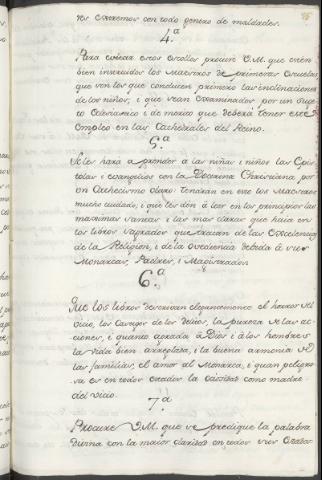 los extremos con todo genero de maldades.
4.ª
Para evitar estos escollos procure V.M. que esten
bien instruidos los Maestros de primeras Escuelas,
que son los que conducen primero las inclinaciones
de los niños; i que sean examinados por un suge
to Eclesiastico i de merito que deberá tener este
Empleo en las Cathedrales del Reino.
5.ª
Se les hará aprender a las niñas i niños las Epis
tolas i evangelios con la Doctrina Christiana por
un Cathecismo claro: tendrán en esto los Maestros
mucho cuidado; i que les den á leer en los principios las
maximas santas i las mas claras que haia en
los libros sagrados que tratan de las excelencias
de la Religion, i de la obediencia debida á sus
Monarcas, Padres, i Magistrados
6.ª
Que los libros describan elegantemente el horror del
vicio, los castigos de los delitos, la pureza de las ac
ciones, i quanto agrada á Dios i á los hombres
la vida bien arreglada, i la buena armonia de
las familias, el amor al Monarca, i quan peligro
sa es en todo estado la ociosidad como madre
del vicio.
7.ª
Procure V.M. que se predique la palabra
Divina con la maior claridad en todos sus Estados